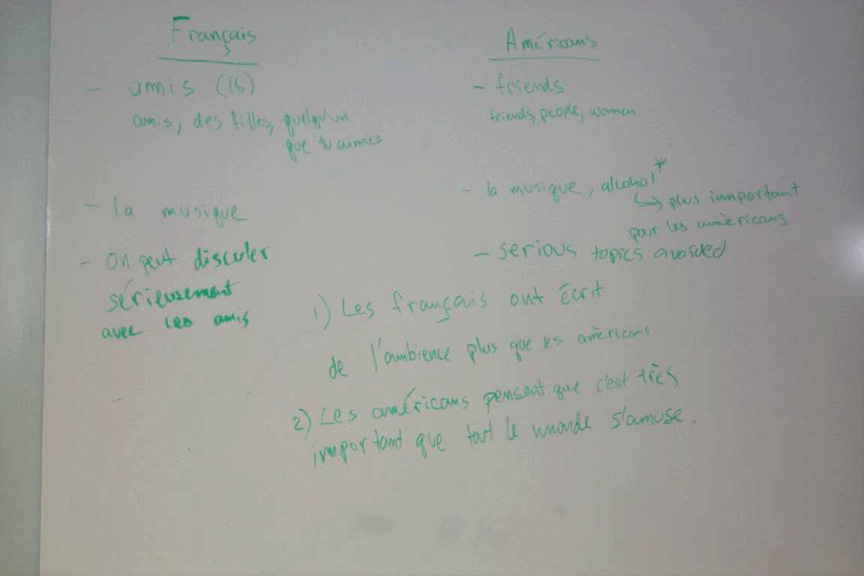 Français
- amis (16)
amis, des filles, quelqu'un
que tu aimes
- la musique
- On peut discuter
sérieusement
avec les amis
Américans
- friends
friends, people, women
- la musique, alcohol*
↳ plus important
pour les américans
- serious topics avoided
1) Les français ont écrit
de l'ambience plus que les américans.
2) Les américans pensent que c'est très
important que tout le monde s'amuse.